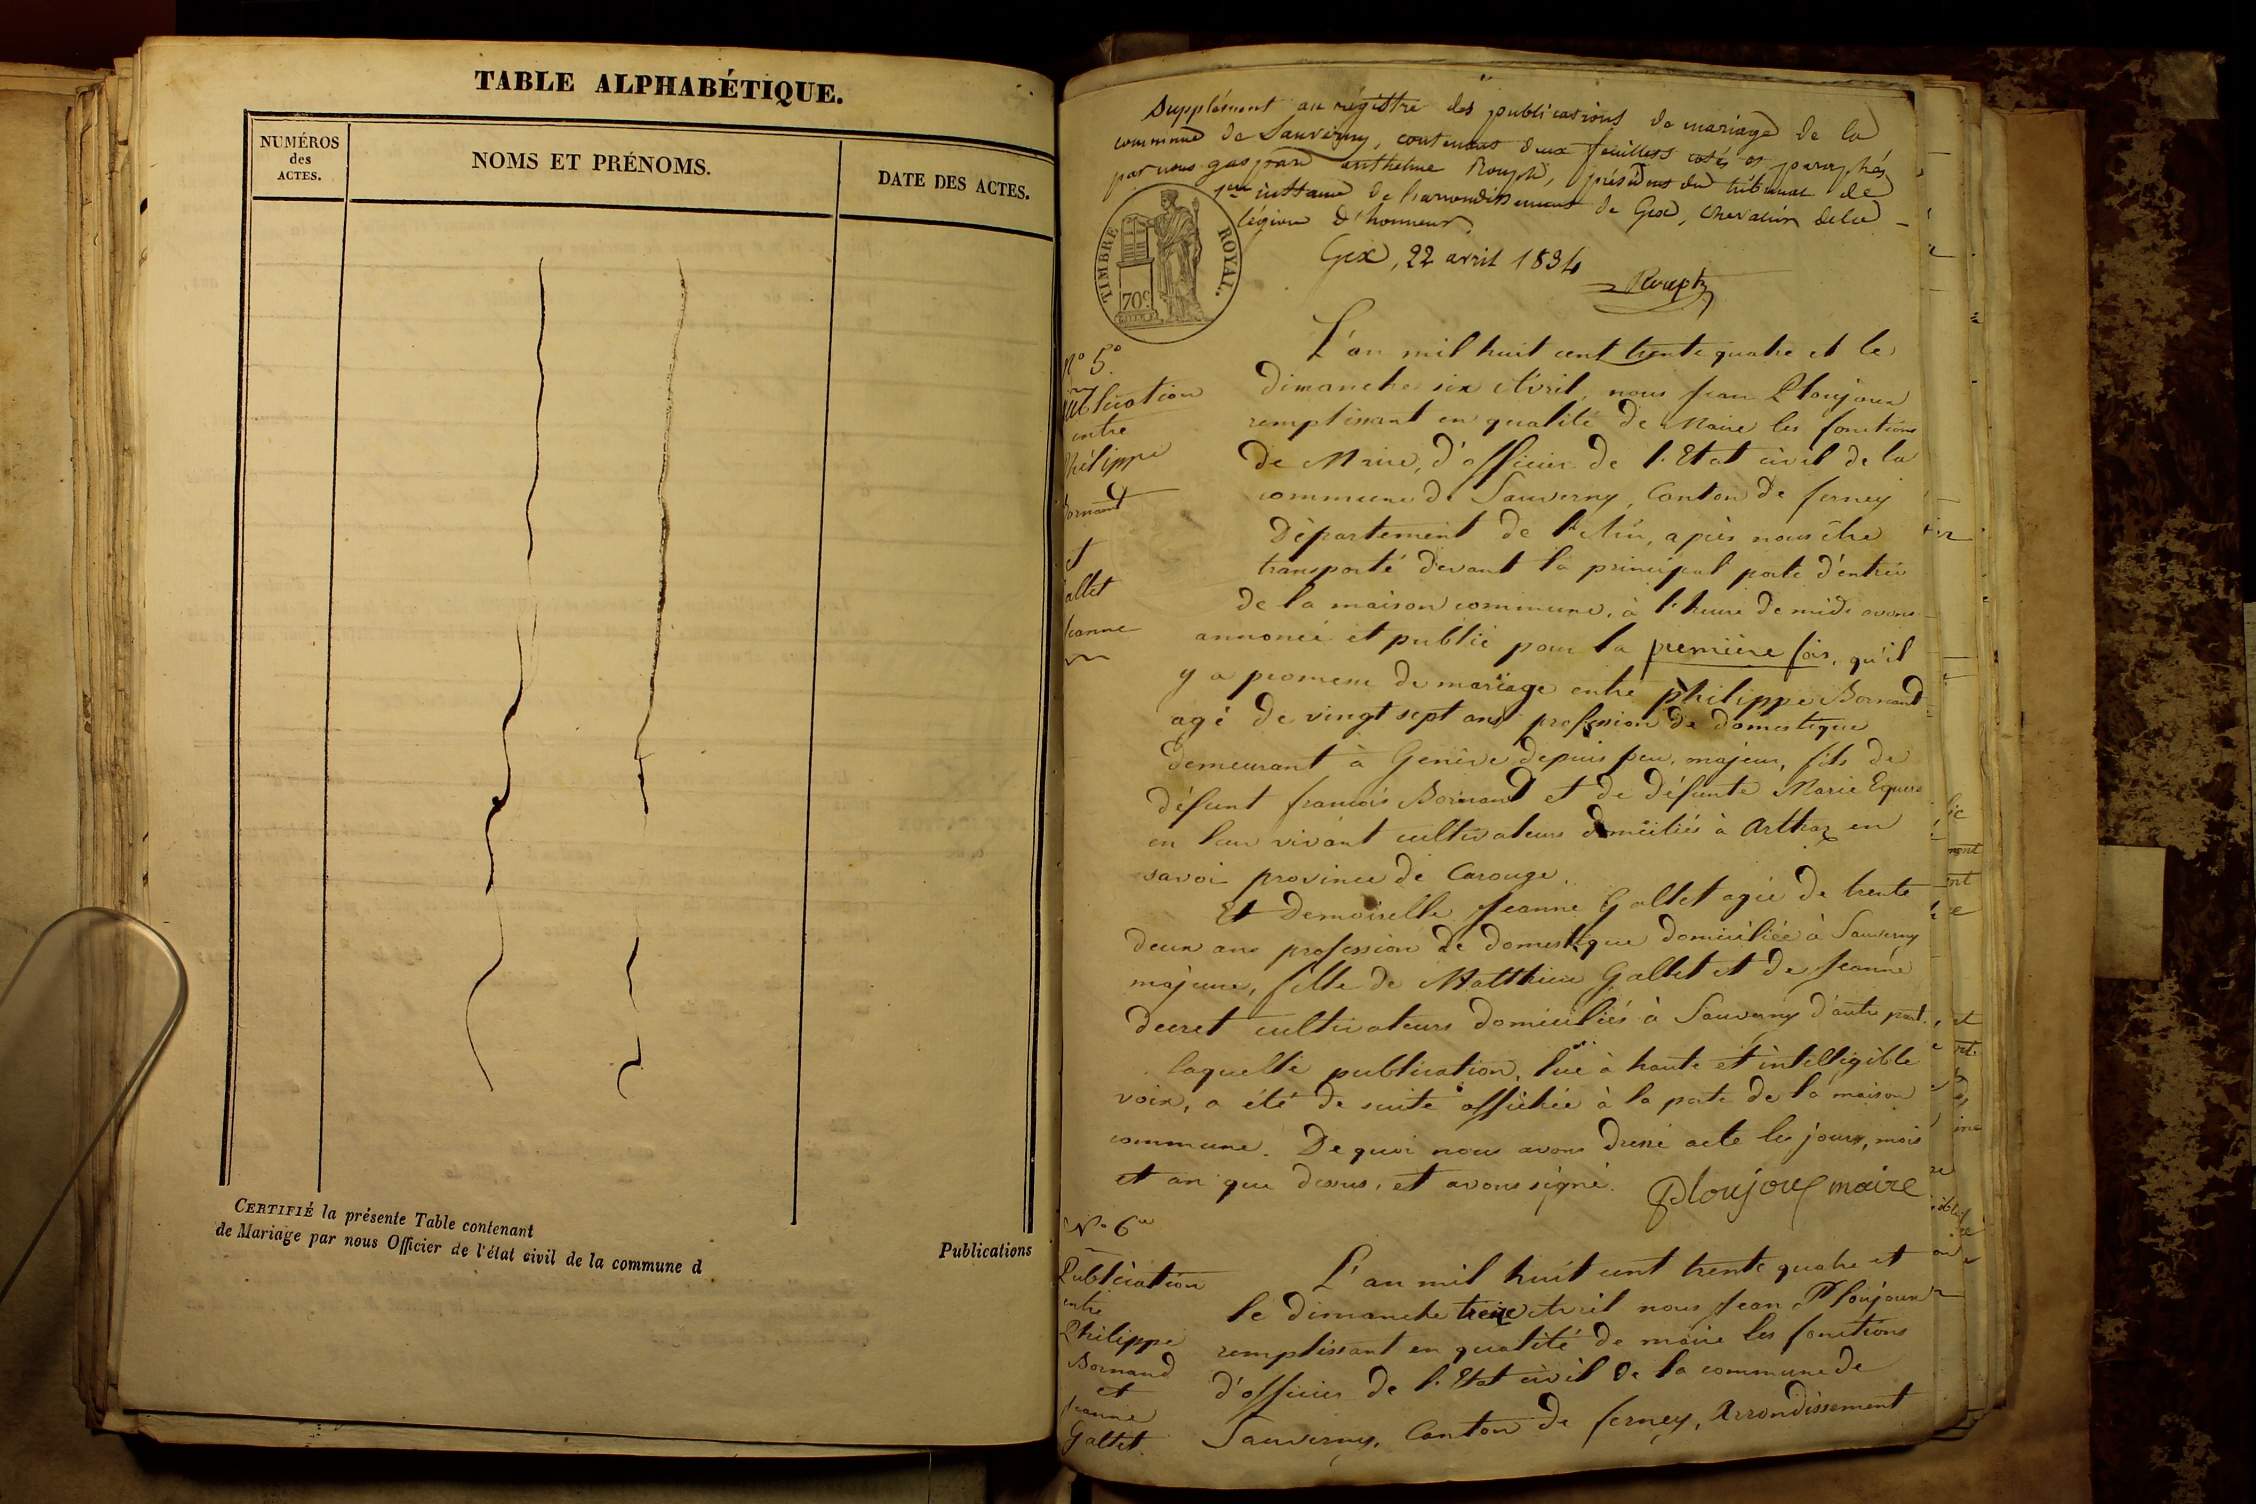 TABLE ALPHABÉTIQUE.
NUMÉROS
des
ACTES.
NOMS ET PRÉNOMS.
DATE DES ACTES.
CERTIFIÉ la présente Table contenant
Publications
de Mariage par nous Officier de l'état civil de la commune d
Supplément au régistre des publications de mariage de la
commune de Sauverny, contenant deux feuillets cotés et paraphés
par nous gaspard anthelme Rouph, président du tribunal de
1ere instance de l'arrondissement de Gex, chevalier de la
légion d'honneur.
Gex, 22 avril 1834
Rouph
TIMBRE ROYAL.
70c
N° 5°
Publication
entre
Philippe
Bornand
et
Gallet
Jeanne
L'an mil huit cent trente quatre et le
dimanche six Avril, nous Jean Ploujoux
remplissant en qualité de Maire les fonctions
de Maire, d'officier de l'Etat civil de la
commune de Sauverny, Canton de ferney
Département de l'Ain, après nous être
transporté devant la principal porte d'entrée
de la maison commune, à l'heure de midi avons
annoncé et publié pour la première fois, qu'il
y a promesse de mariage entre philippe Bornand
agé de vingt sept ans profession de domestique
demeurant à Genève depuis peu, majeur, fils de
défunt francois Bornand et de défunte Marie
en leur vivant cultivateurs domiciliés à Arthaz en
savoi province de Carouge.
Et Demoiselle Jeanne Gallet agée de trente
deux ans profession de domestique domiciliée à Sauverny
majeure, fille de Matthieu Gallet et de Jeanne
decret cultivateurs domiciliés à Sauverny d'autre part.
laquelle publication, lue à haute et intelligible
voix, a été de suite affichée à la porte de la maison
commune. De quoi nous avons dressé acte les jours, mois
et an que dessus, et avons signé. Ploujoux maire
N° 6e
Publication
entre
Philippe
Bornand
et
Jeanne
Gallet.
L'an mil huit cent trente quatre et
le dimanche treize Avril nous Jean Ploujoux
remplissant en qualité de maire les fonctions
d'officier de l'Etat civil de la commune de
Sauverny, Canton de ferney, Arrondissement